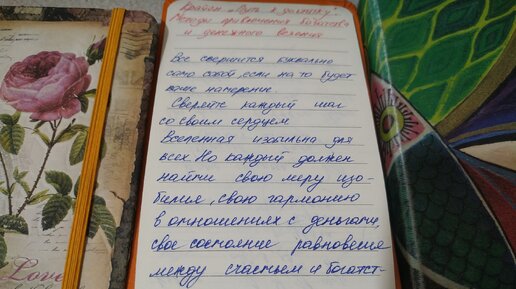 Крайон „Путь к достатку".
Методы привлечения богатства
и денежного везения
Все свершится буквально
само собой если на то будет
ваше намерение.
Сверяйте каждый шаг
со своим сердцем
Вселенная изобильна для
всех. Но каждый должен
найти свою меру изо-
билия, свою гармонию
в отношениях с деньгами,
свое состояние равновесия
между счастьем и богатст-
Love